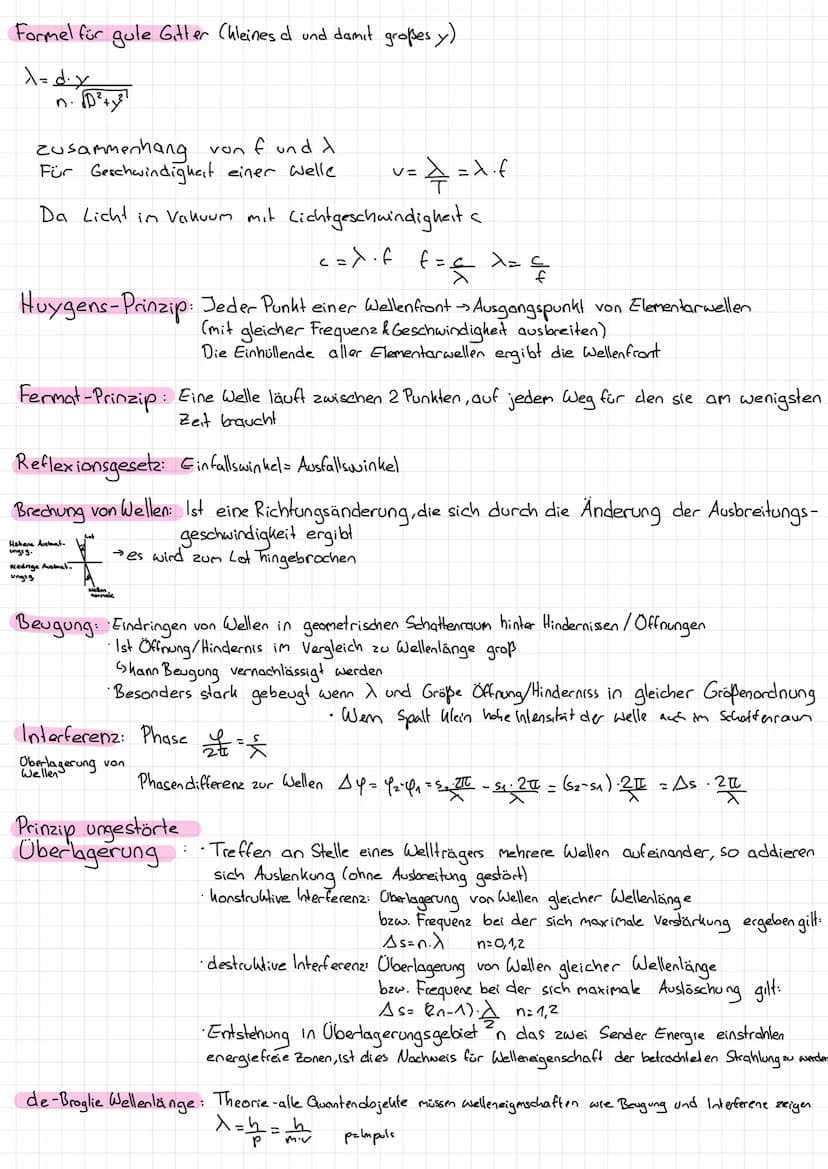 Formel für gute Gitter (kleines d und damit großes y)
λ = d·y / n·√(D²+y²)
zusammenhang von f und λ
Für Geschwindigkeit einer Welle v = λ/T = λ·f
Da Licht im Vakuum mit Lichtgeschwindigkeit c
c = λ·f f = c/λ λ = c/f
Huygens-Prinzip: Jeder Punkt einer Wellenfront → Ausgangspunkt von Elementarwellen
(mit gleicher Frequenz & Geschwindigkeit ausbreiten)
Die Einhüllende aller Elementarwellen ergibt die Wellenfront
Fermat-Prinzip: Eine Welle läuft zwischen 2 Punkten, auf jedem Weg für den sie am wenigsten
Zeit braucht
Reflexionsgesetz: Einfallswinkel = Ausfallswinkel
Brechung von Wellen: Ist eine Richtungsänderung, die sich durch die Änderung der Ausbreitungs-
geschwindigkeit ergibt
→ es wird zum Lot hingebrochen
Lot
Wellennormale
Beugung: · Eindringen von Wellen in geometrischen Schattenraum hinter Hindernissen / Öffnungen
· Ist Öffnung/Hindernis im Vergleich zu Wellenlänge groß
↳ kann Beugung vernachlässigt werden
· Besonders stark gebeugt wenn λ und Größe Öffnung/Hinderniss in gleicher Größenordnung
· Wenn Spalt klein hohe Intensität der Welle auch im Schattenraum
Interferenz: Phase φ/2π = s/λ
Überlagerung von
Wellen
Phasendifferenz zur Wellen Δφ = φ₂-φ₁ = s₂·2π/λ - s₁·2π/λ = (s₂-s₁)·2π/λ = Δs · 2π/λ
Prinzip ungestörte
Überlagerung : · Treffen an Stelle eines Wellträgers mehrere Wellen aufeinander, so addieren
sich Auslenkung (ohne Ausbreitung gestört)
· konstruktive Interferenz: Überlagerung von Wellen gleicher Wellenlänge
bzw. Frequenz bei der sich maximale Verstärkung ergeben gilt:
Δs = n·λ n=0,1,2
· destruktive Interferenz: Überlagerung von Wellen gleicher Wellenlänge
bzw. Frequenz bei der sich maximale Auslöschung gilt:
Δs = (2n-1)·λ/2 n=1,2
· Entstehung in Überlagerungsgebiet in das zwei Sender Energie einstrahlen
energiefreie Zonen, ist dies Nachweis für Welleneigenschaft der betrachteten Strahlung zu werden
de-Broglie Wellenlänge: Theorie - alle Quantenobjekte müssen welleneigenschaften wie Beugung und Interferenz zeigen
λ = h/p = h/m·v p = Impuls